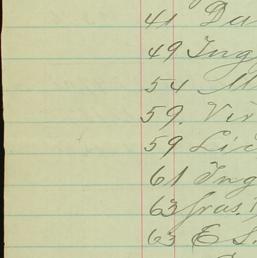 41 Da
49 Ing
54 M
59. Vir
59 Lic
61 Ing
63 Jras.
63 E S.